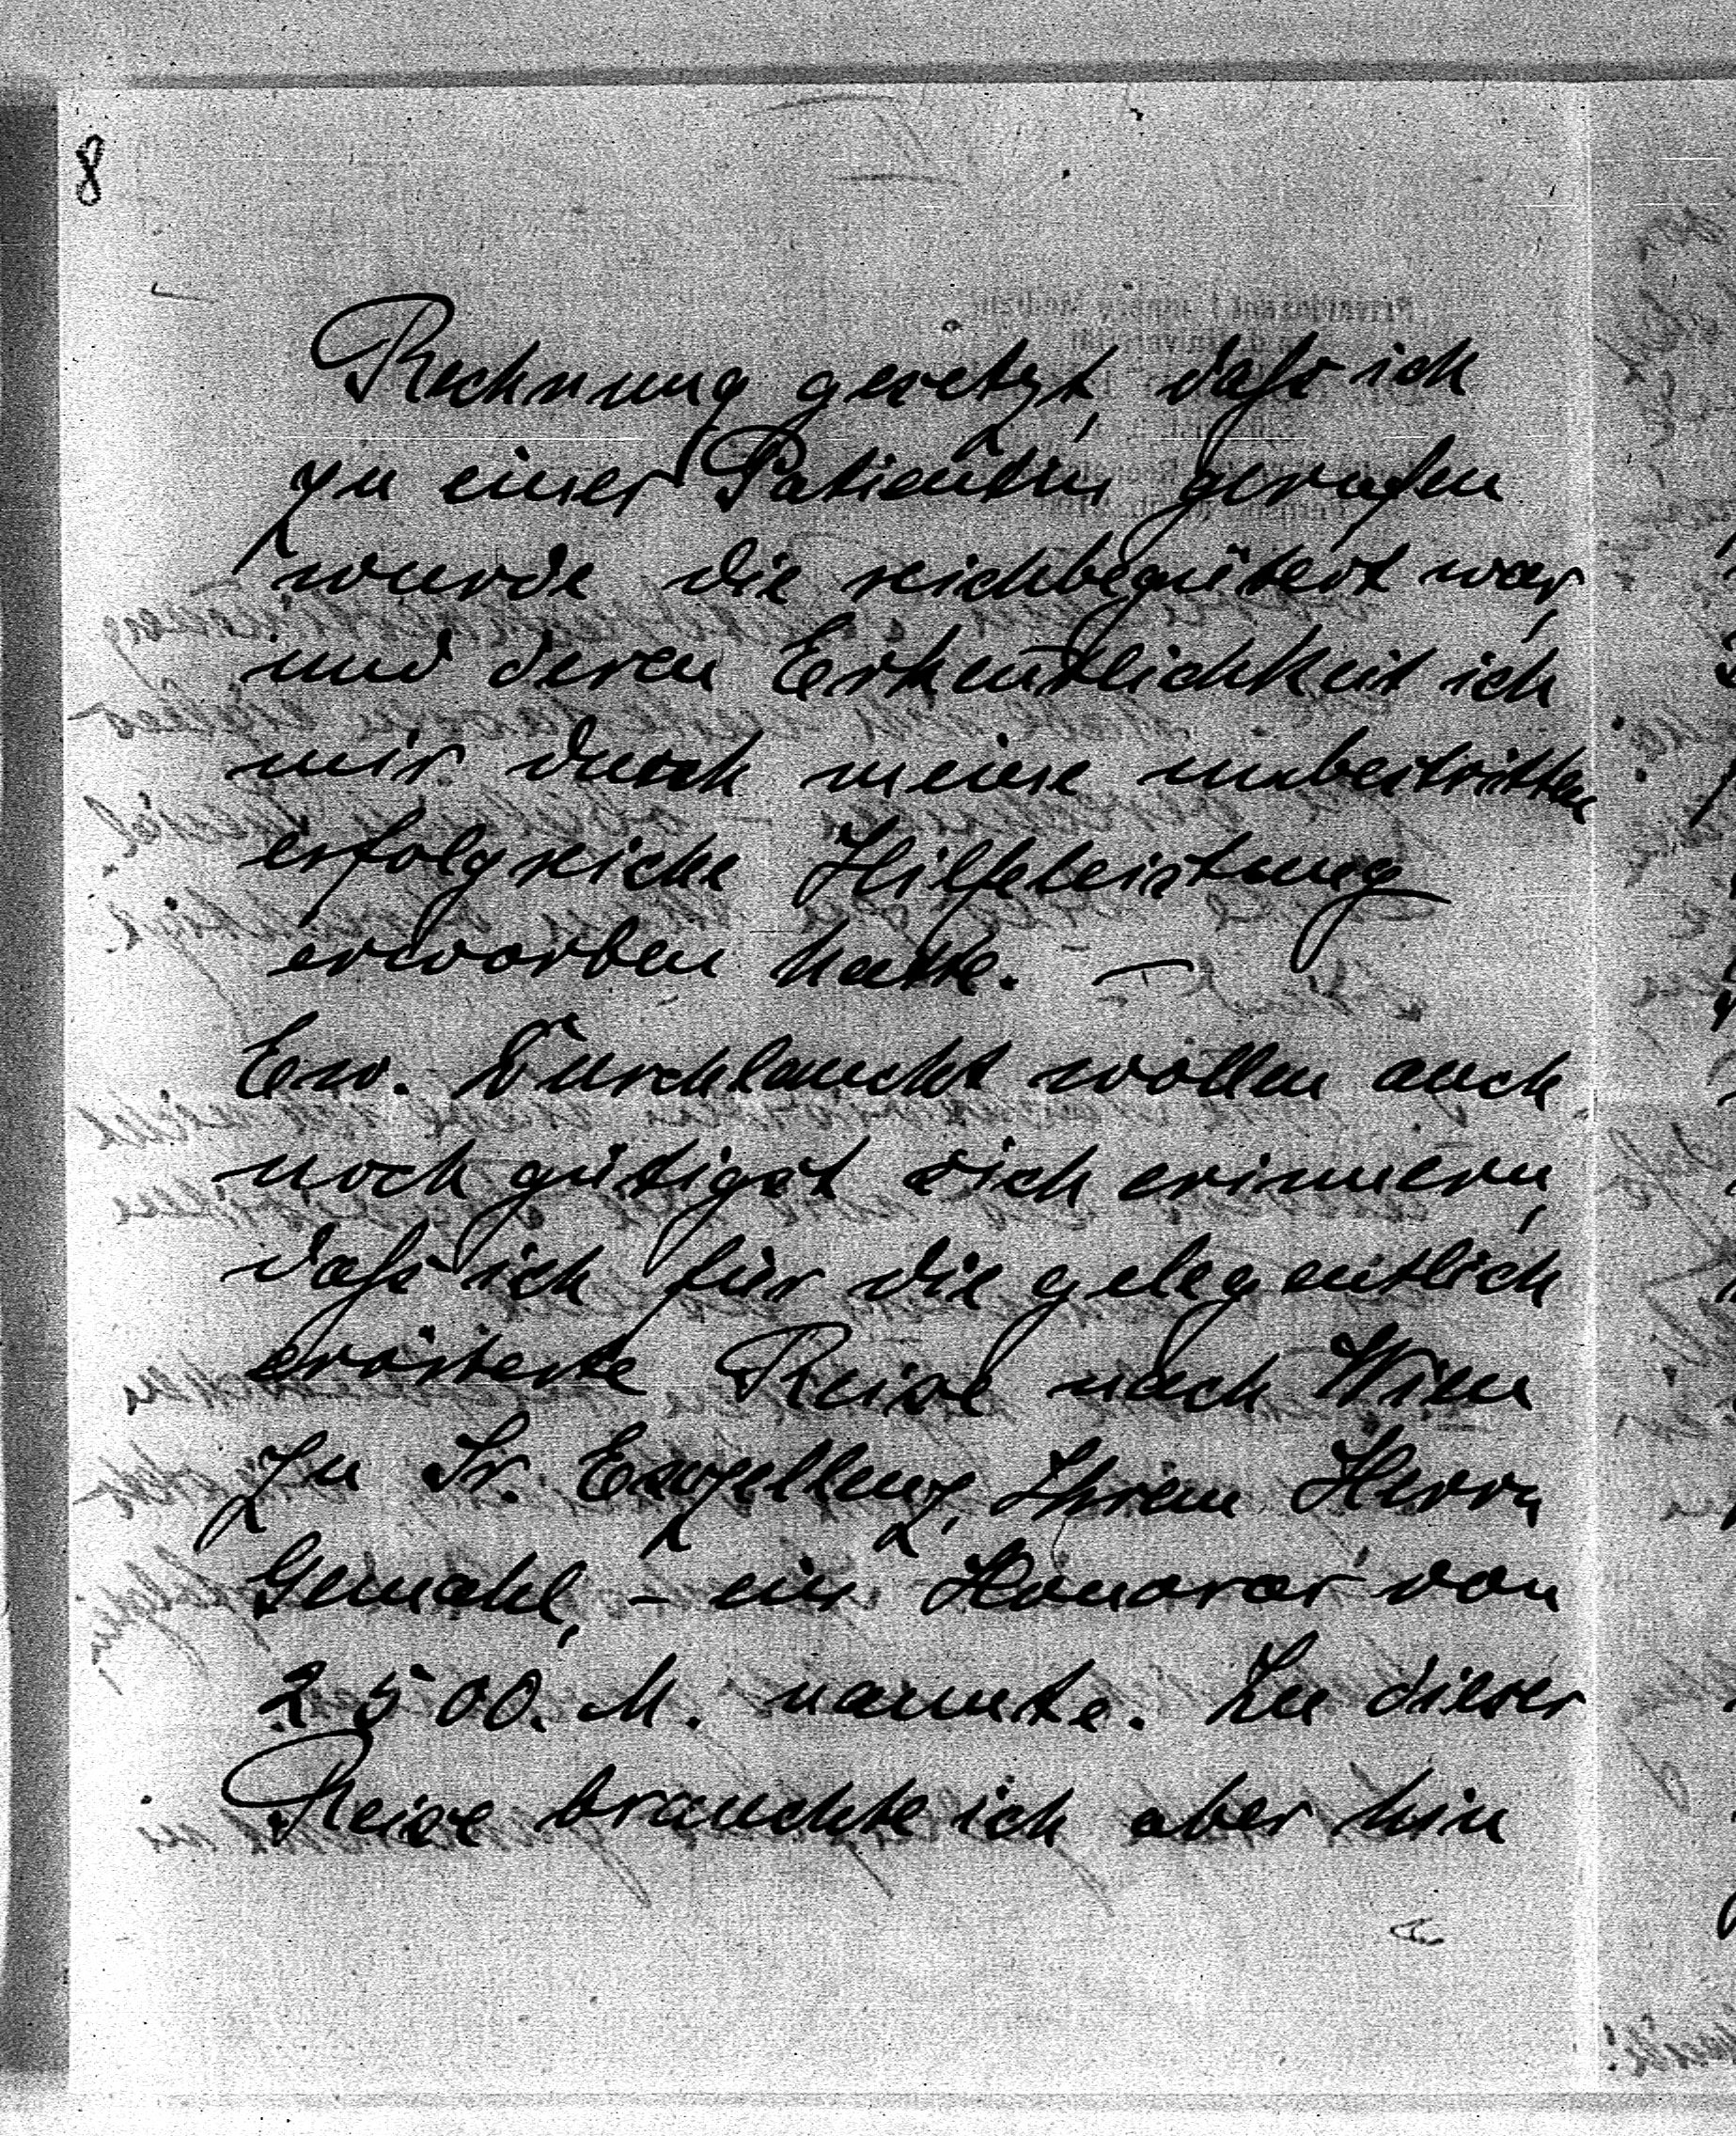 8
Rechnung gesetzt, daß ich
zu einer Patientin gerufen
wurde die reichbegütert war,
und deren Erkentlichkeit ich
mir durch meine unbestritten
erfolgreiche Hilfeleistung
erworben hatte. —
Ew. Durchlaucht wollen auch
noch gütigst sich erinnern,
daß ich für die gelegentlich
erörterte Reise nach Wien
zu Sr. Exzellenz, Ihrem Herrn
Gemahl, – ein Honorar von
2500. M. nannte. Zu dieser
Reise brauchte ich aber hin